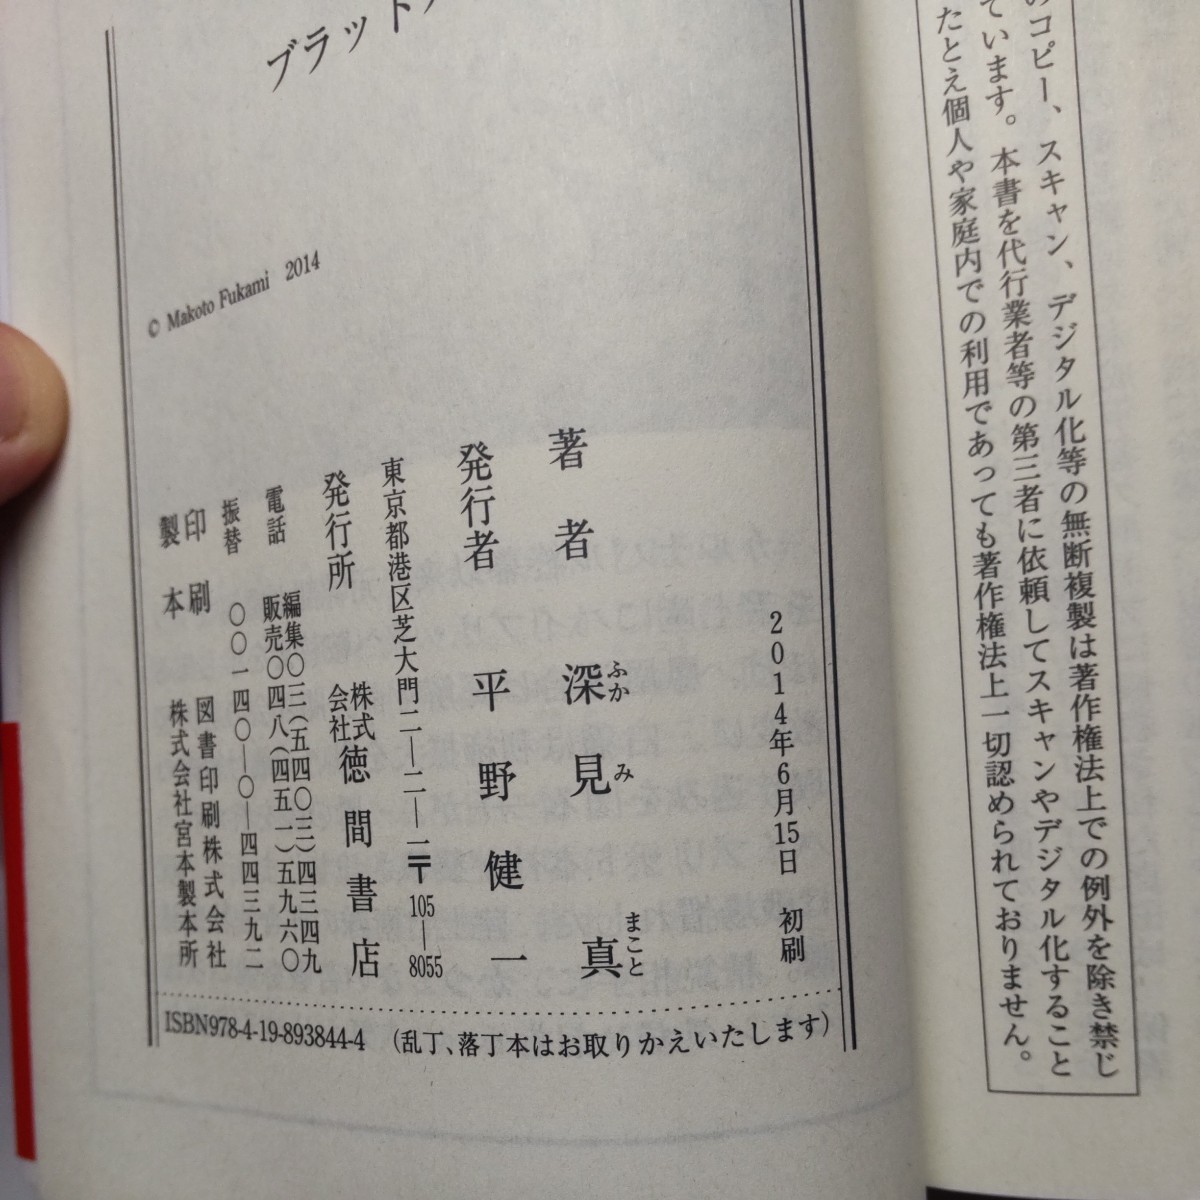 のコピー、スキャン、デジタル化等の無断複製は著作権法上での例外を除き禁じ
ています。本書を代行業者等の第三者に依頼してスキャンやデジタル化すること
たとえ個人や家庭内での利用であっても著作権法上一切認められておりません。
ブラッド
© Makoto Fukami 2014
2014年6月15日 初刷
著者 深見真
ふかみ まこと
発行者 平野健一
東京都港区芝大門二―二―一〒105―8055
発行所 株式会社徳間書店
電話 編集〇三(五四〇三)四三四九
販売〇四八(四五一)五九六〇
振替 〇〇一四〇―〇―四四三九二
印刷 図書印刷株式会社
製本 株式会社宮本製本所
ISBN978-4-19-893844-4 (乱丁、落丁本はお取りかえいたします)